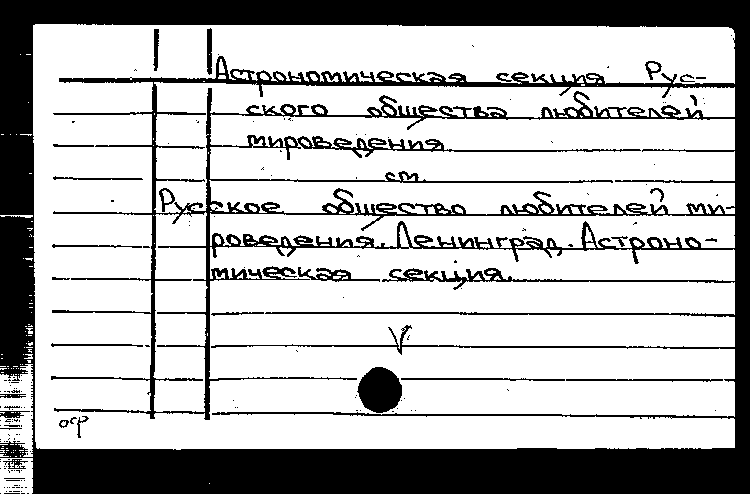 Астрономическая секция Рус-
ского общества любителей
мироведения
см.
Русское общество любителей ми-
роведения. Ленинград. Астроно-
мическая секция.
V